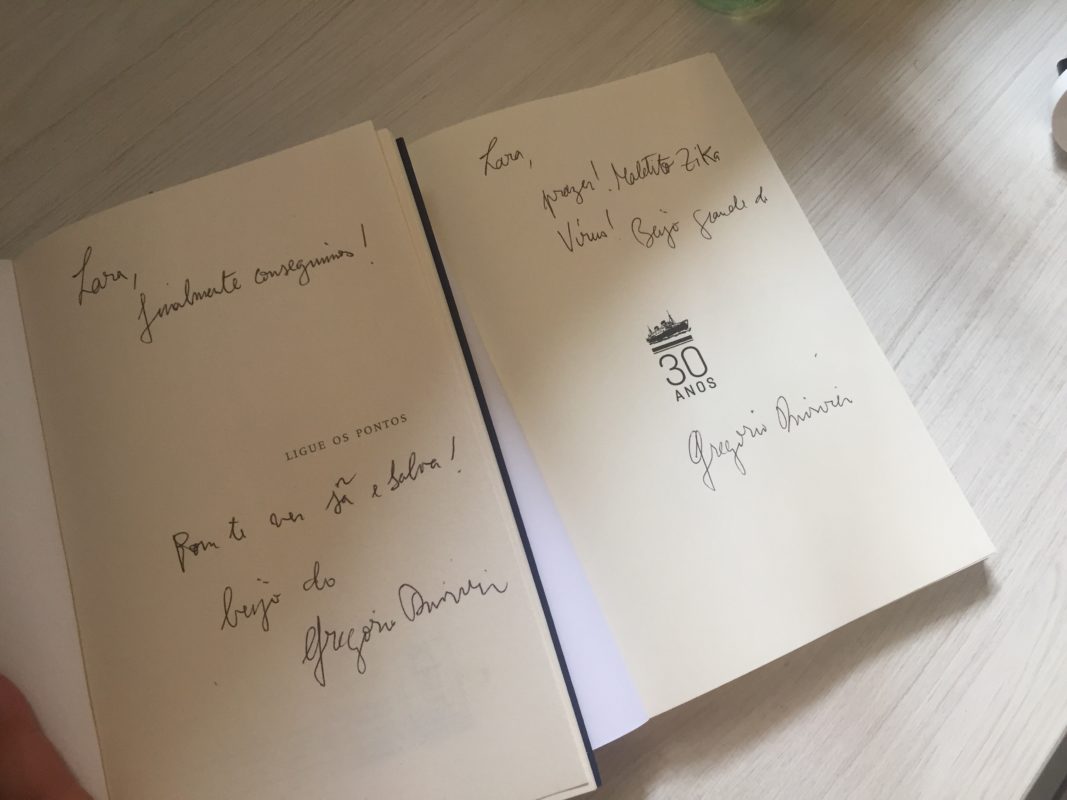 Lara,
finalmente conseguimos!
LIGUE OS PONTOS
Bom te ver sã e salva!
beijo do
Gregorio Duvivier
Lara,
prazer! Maldito Zika
Vírus! Beijo grande do
30
ANOS
Gregorio Duvivier